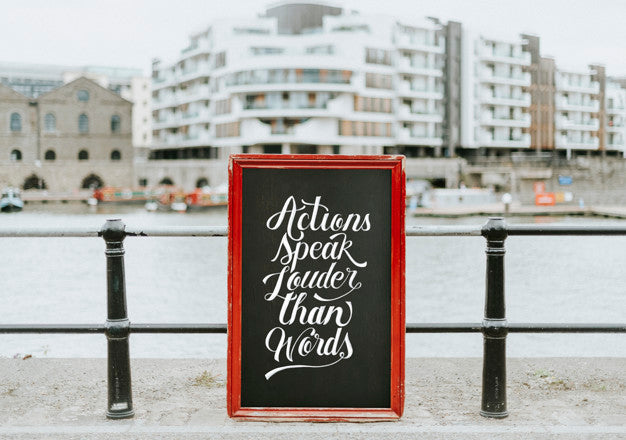 Actions
Speak
Louder
than
Words